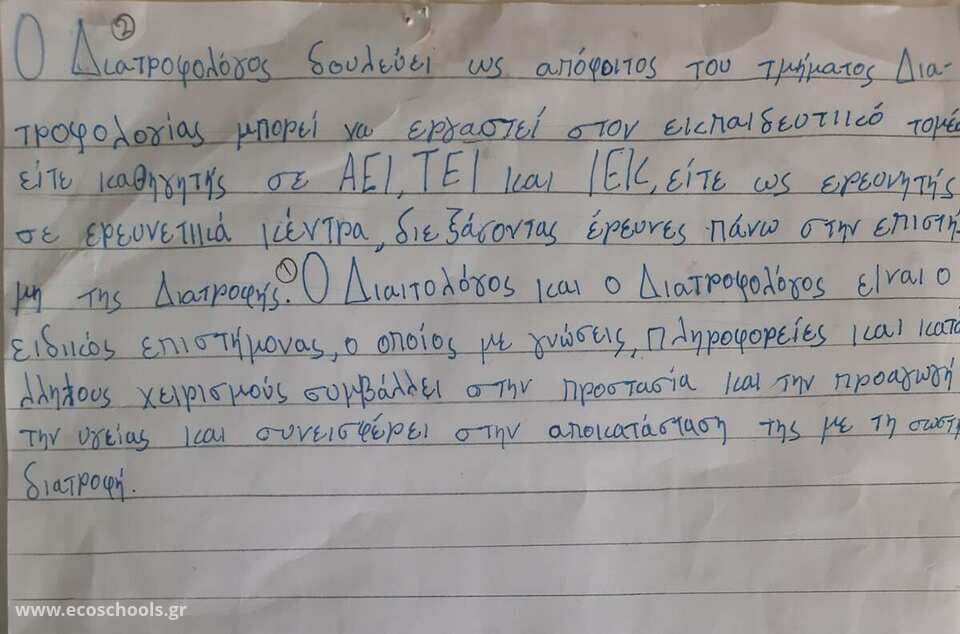 ②
Ο Διατροφολόγος δουλεύει ως απόφοιτος του τμήματος Δια-
τροφολογίας μπορεί να εργαστεί στον εκπαιδευτικό τομέα
είτε καθηγητής σε ΑΕΙ, ΤΕΙ και ΙΕΚ, είτε ως ερευνητής
σε ερευνετικά κέντρα, διεξάσοντας έρευνες πάνω στην επιστή
μη της Διατροφής. ① Ο Διαιτολόγος και ο Διατροφολόγος είναι ο
ειδικός επιστήμονας, ο οποίος με γνώσεις, πληροφορείες και κατά
λληλους χειρισμούς συμβάλλει στην προστασία και την προαγωγή
την υγείας και συνεισφέρει στην αποκατάσταση της με τη σωστή
διατροφή.
www.ecoschools.gr